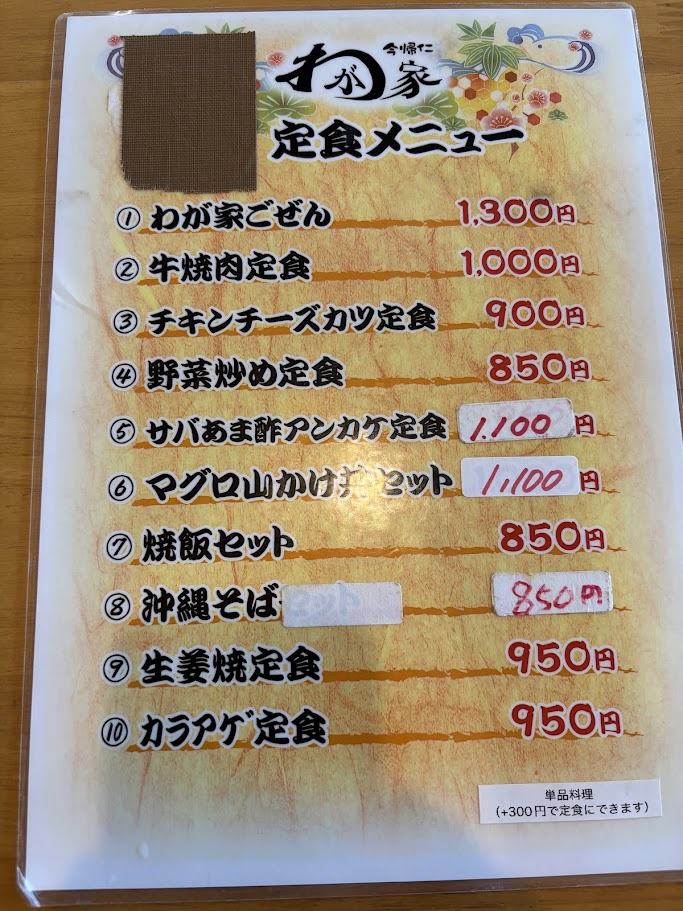 今帰仁
わが家
定食メニュー
① わが家ごぜん 1,300円
② 牛焼肉定食 1,000円
③ チキンチーズカツ定食 900円
④ 野菜炒め定食 850円
⑤ サバあま酢アンカケ定食 1.100円
⑥ マグロ山かけ丼セット 1,100円
⑦ 焼飯セット 850円
⑧ 沖縄そば 850円
⑨ 生姜焼定食 950円
⑩ カラアゲ定食 950円
単品料理
(+300円で定食にできます)